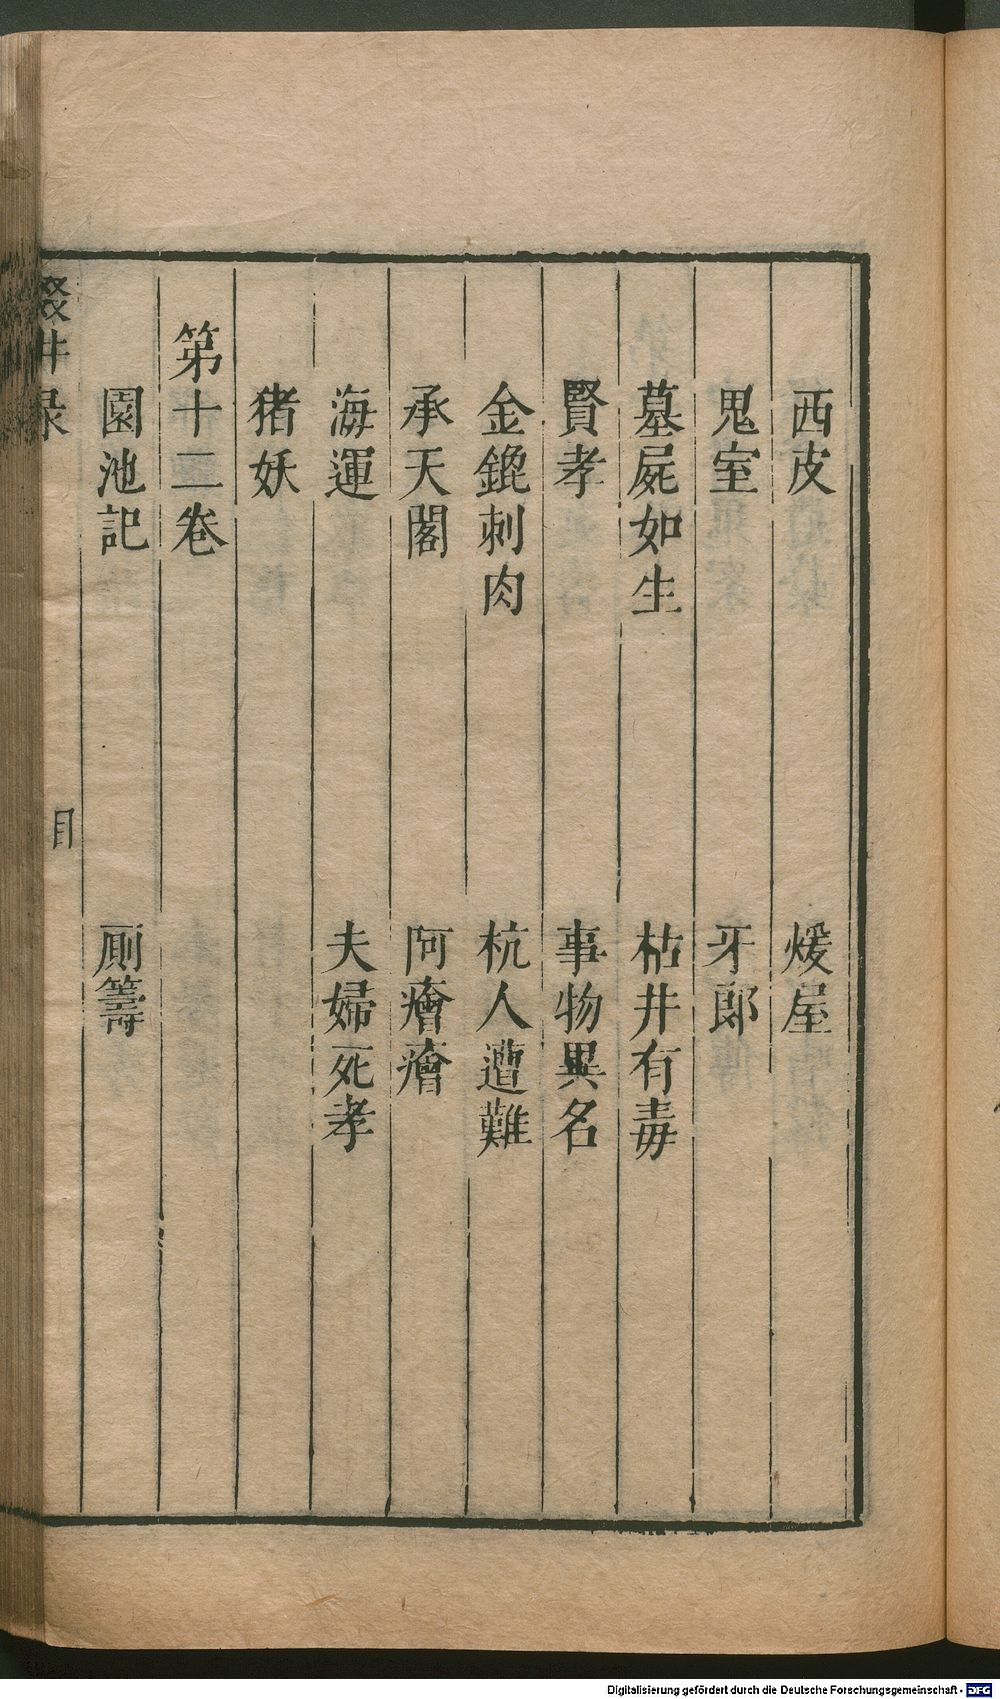 西皮 煖屋
鬼室 牙郎
墓屍如生 枯井有毒
賢孝 事物異名
金鎞刺肉 杭人遭難
承天閣 阿癐癐
海運 夫婦死孝
猪妖
第十二卷
園池記 厠籌
目
Digitalisierung gefördert durch die Deutsche Forschungsgemeinschaft - DFG